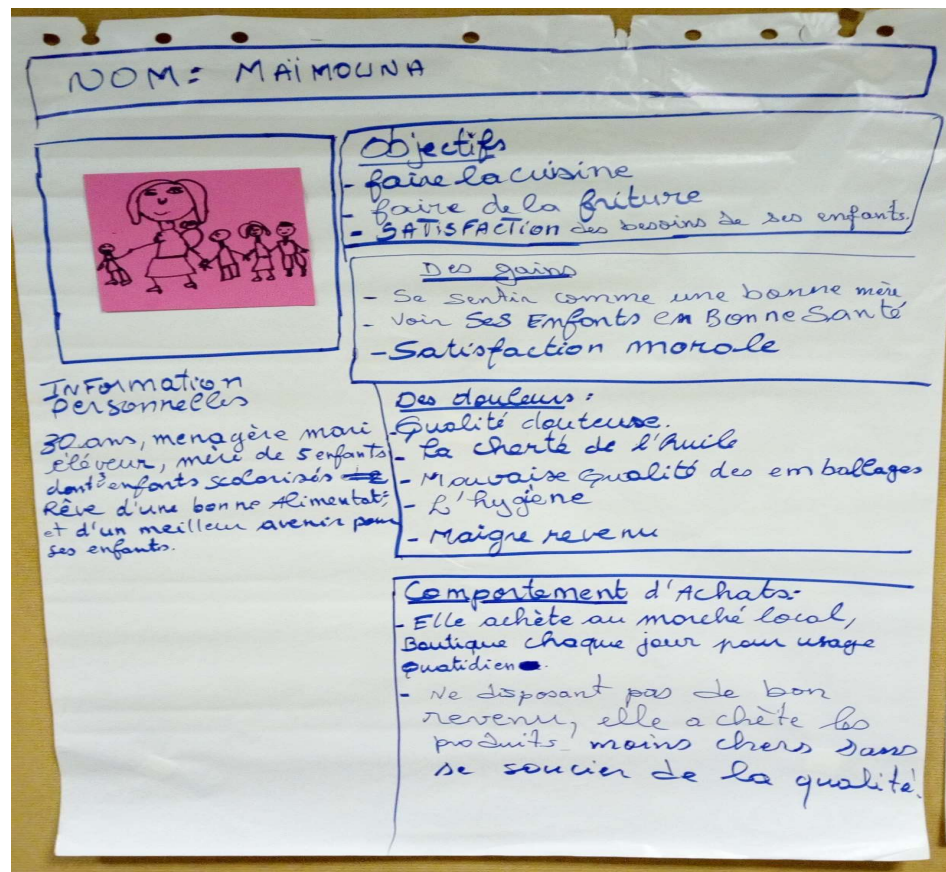 NOM: MAÏMOUNA
Objectifs
- faire la cuisine
- faire de la friture
- SATISFACTION des besoins de ses enfants.
Des gains
- Se sentir comme une bonne mère
- Voir Ses Enfants en Bonne Santé
- Satisfaction morale
Information
personnelles
30 ans, menagère mari
éléveur, mère de 5 enfants
dont enfants scolarisés
Rêve d'une bonne Alimentat°
et d'un meilleur avenir pour
ses enfants.
Des douleurs :
- Qualité douteuse.
- La cherté de l'huile
- Mauvaise Qualité des emballages
- L'hygiene
- Maigre revenu
Comportement d'Achats:
- Elle achète au marché local,
Boutique chaque jour pour usage
quatidien.
- Ne disposant pas de bon
revenu, elle achète les
produits moins chers sans
se soucier de la qualité.